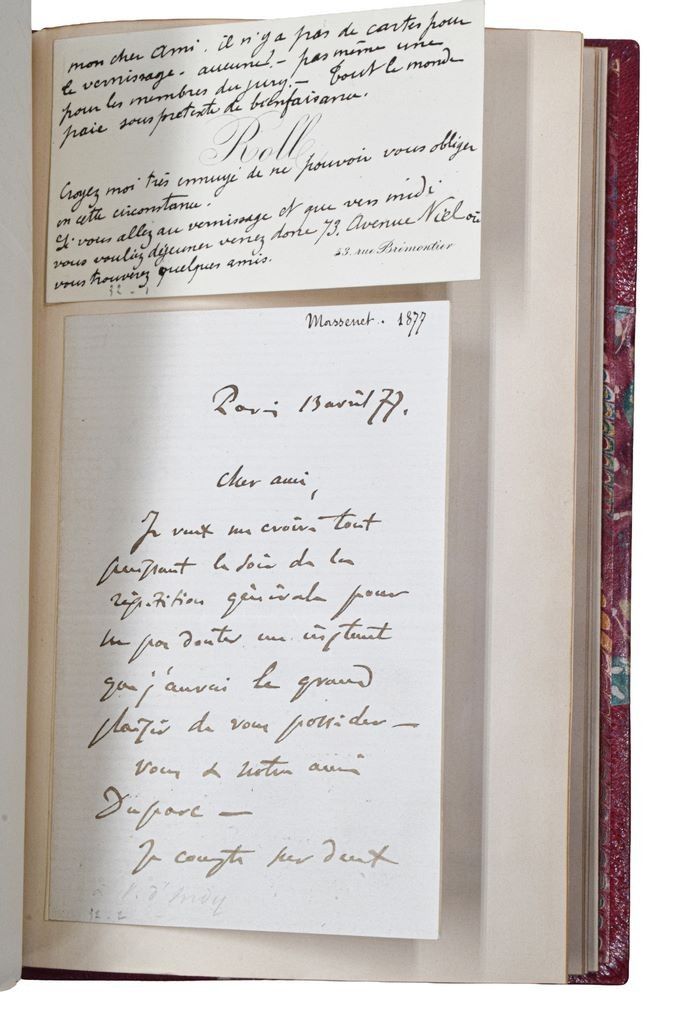 mon cher Ami. il n'y a pas de cartes pour
le vernissage. aucune! - pas même une
pour les membres du jury. - Tout le monde
paie sous pretexte de bienfaisance.
Roll
Croyez moi très ennuyé de ne pouvoir vous obliger
en cette circonstance.
Si vous allez au vernissage et que vers midi
vous vouliez déjeuner venez donc 73, Avenue Niel où
vous trouverez quelques amis.
43, rue Brémontier
32 - 1
Massenet. 1877
Paris 13 avril 77.
Cher ami,
Je veux me croire tout
puissant le soir de la
répétition générale pour
ne pas douter un instant
que j'aurai le grand
plaisir de vous posséder —
vous & notre ami
Duparc —
Je compte sur
à V. d'Indy
32 - 2